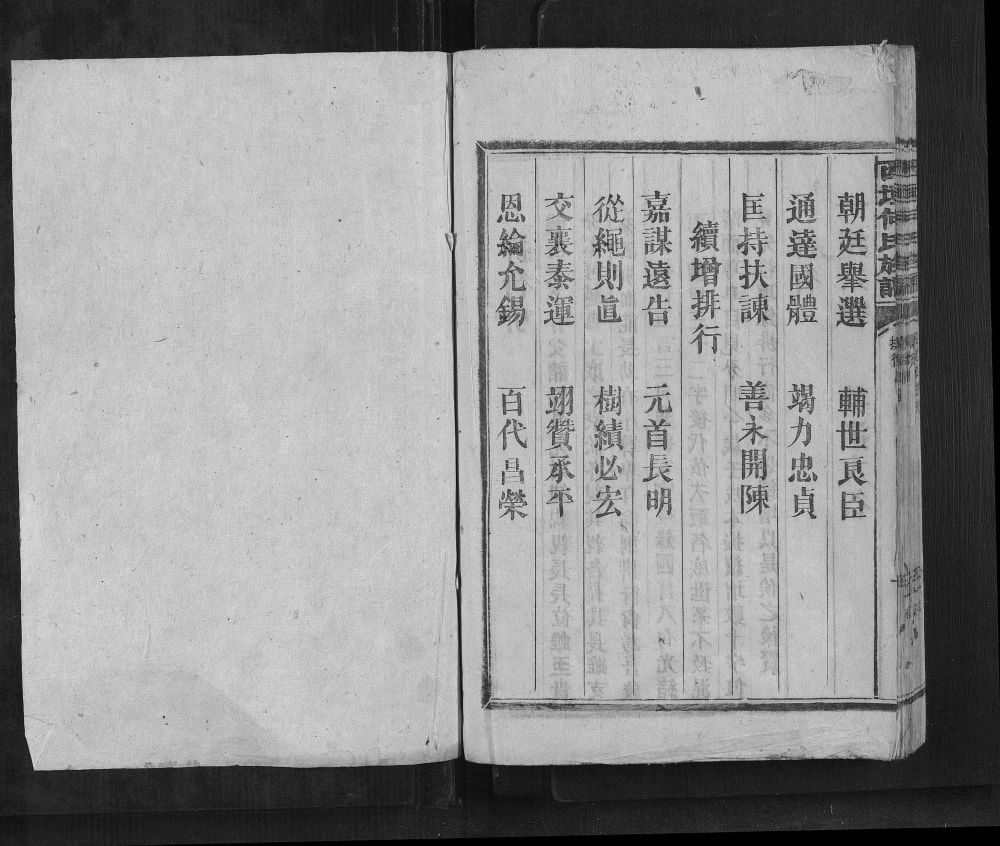 朝廷舉選 輔世良臣
通達國體 竭力忠貞
匡持扶諫 善永開陳
續增排行
嘉謀遠告 元首長明
從繩則眞 樹績必宏
交襄泰運 翊贊承平
恩綸允錫 百代昌榮
氏族譜